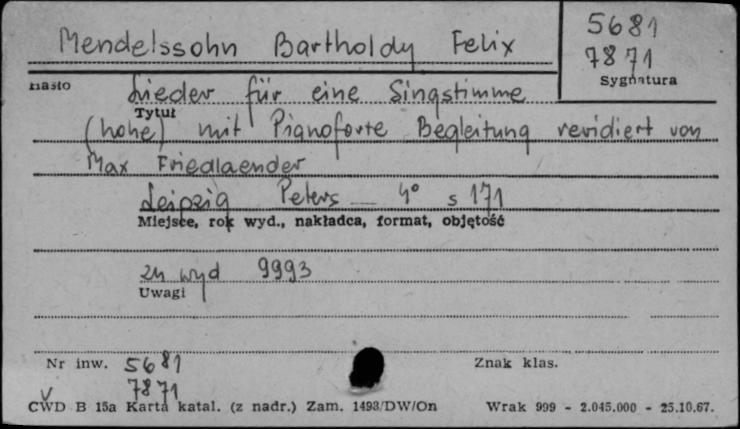 Mendelssohn Bartholdy Felix
5681
7871
Sygnatura
Hasło
Lieder für eine Singstimme
Tytuł
(hohe) mit Pianoforte Begleitung revidiert von
Max Friedlaender
Leipzig Peters — 4° s 171
Miejsce, rok wyd., nakładca, format, objętość
zn wyd 9993
Uwagi
Nr inw. 5681
7871
Znak klas.
CWD B 15a Karta katal. (z nadr.) Zam. 1493/DW/On Wrak 999 - 2.045.000 - 25.10.67.